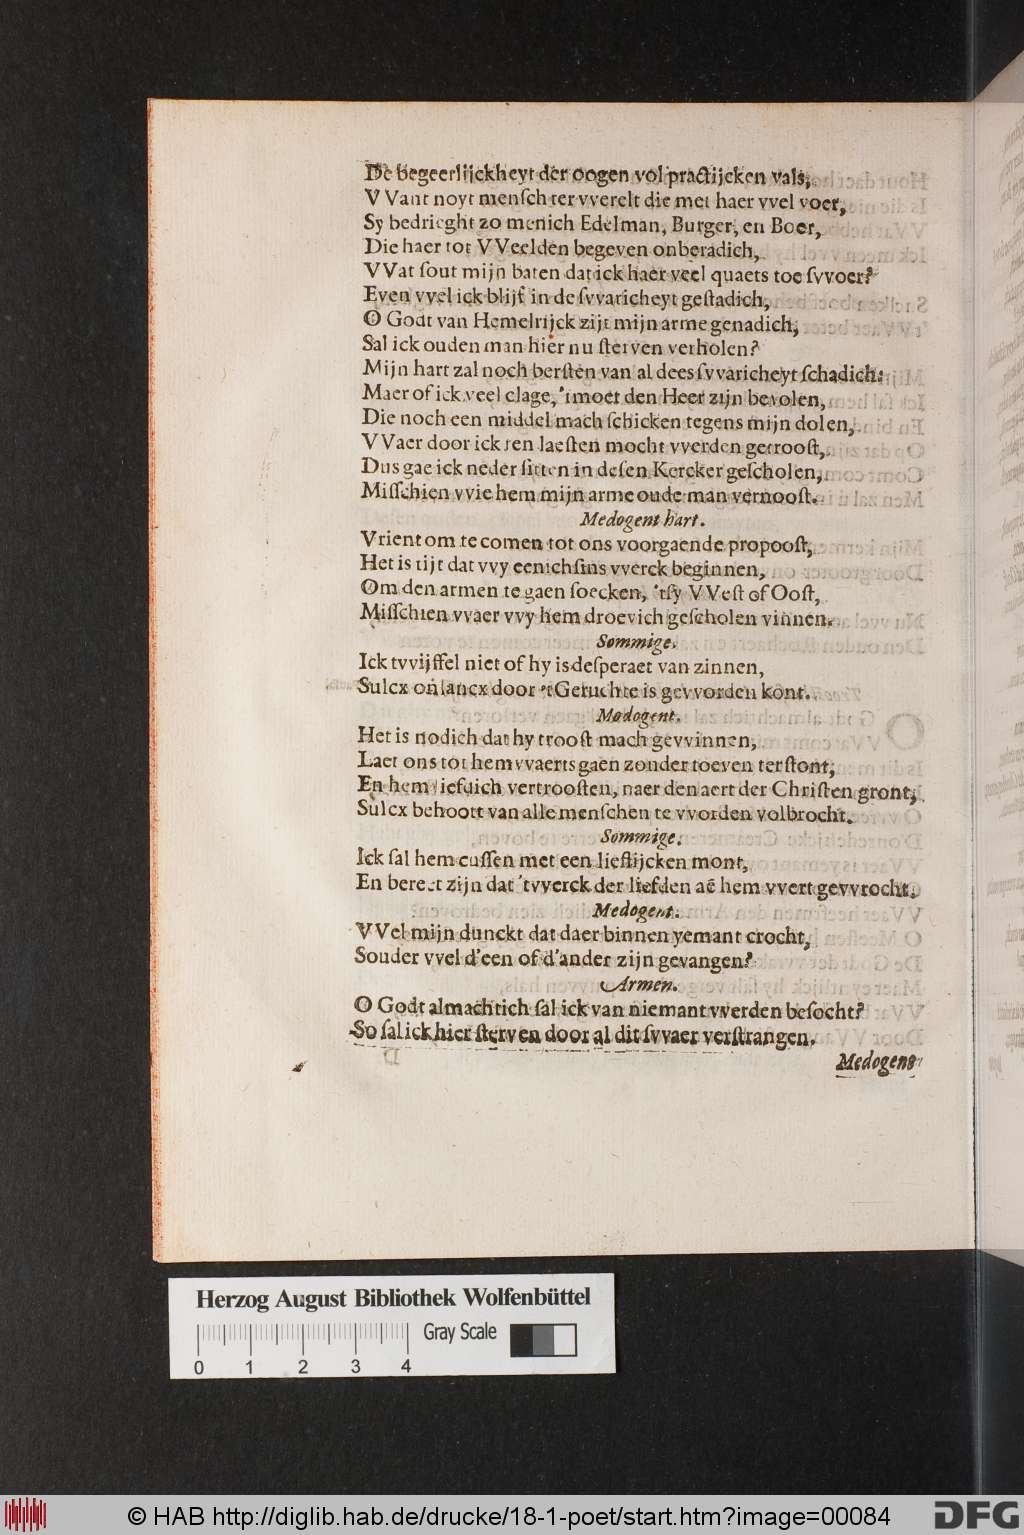 De begeerlijckheyt der oogen vol practijcken vals,
VVant noyt menſch ter vverelt die met haer vvel voer,
Sy bedrieght zo menich Edelman, Burger, en Boer,
Die haer tot VVeelden begeven onberadich,
VVat ſout mijn baten dat ick haer veel quaets toe ſvvoer?
Even vvel ick blijf in de ſvvaricheyt geſtadich,
O Godt van Hemelrijck zijt mijn arme genadich,
Sal ick ouden man hier nu ſterven verholen?
Mijn hart zal noch berſten van al dees ſvvaricheyt ſchadich:
Maer of ick veel clage, 'tmoet den Heer zijn bevolen,
Die noch een middel mach ſchicken tegens mijn dolen,
VVaer door ick ten laeſten mocht vverden getrooſt,
Dus gae ick neder ſitten in deſen Kercker geſcholen,
Miſſchien vvie hem mijn arme oude man vernooſt.
Medogent hart.
Vrient om te comen tot ons voorgaende propooſt,
Het is tijt dat vvy eenichſins vverck beginnen,
Om den armen te gaen ſoecken, 'tſy VVeſt of Ooſt,
Miſſchien vvaer vvy hem droevich geſcholen vinnen.
Sommige.
Ick tvvijffel niet of hy is deſperaet van zinnen,
Sulcx onlancx door 't Geruchte is gevvorden kont.
Medogent.
Het is nodich dat hy trooſt mach gevvinnen,
Laet ons tot hem vvaerts gaen zonder toeven terſtont,
En hem liefdich vertrooſten, naer den aert der Chriſten gront,
Sulcx behoort van alle menſchen te vvorden volbrocht.
Sommige.
Ick ſal hem cuſſen met een lieflijcken mont,
En bereet zijn dat 'tvverck der liefden aē hem vvert gevvrocht.
Medogent.
VVel mijn dunckt dat daer binnen yemant crocht,
Souder vvel d'een of d'ander zijn gevangen?
Armen.
O Godt almachtich ſal ick van niemant vverden beſocht?
So ſal ick hier ſterven door al dit ſvvaer verſtrangen.
Medogent
Herzog August Bibliothek Wolfenbüttel
Gray Scale
0 1 2 3 4
© HAB http://diglib.hab.de/drucke/18-1-poet/start.htm?image=00084
DFG